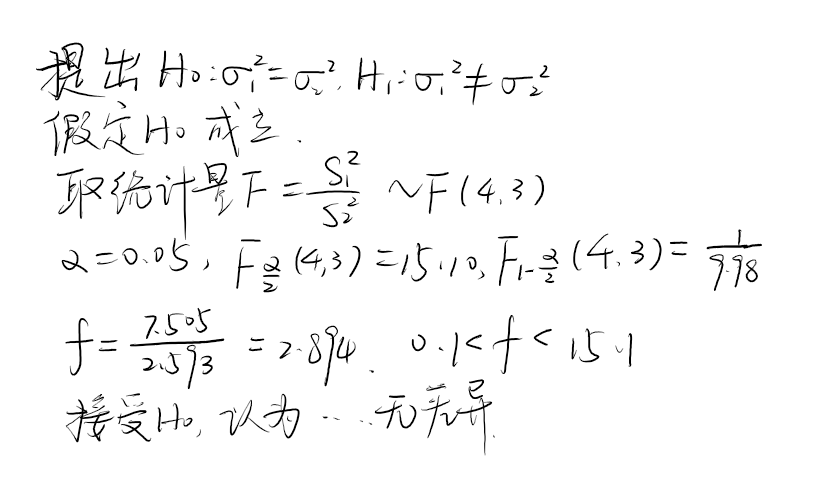 提出 H₀:σ₁²=σ₂², H₁:σ₁²≠σ₂²
假定H₀ 成立.
取统计量F=S₁²/S₂² ~F(4,3)
α=0.05, F_{α/2}(4,3)=15.10, F_{1-α/2}(4,3)=1/9.98
f=7.505/2.593=2.894. 0.1<f<15.1
接受H₀, 认为……无差异.